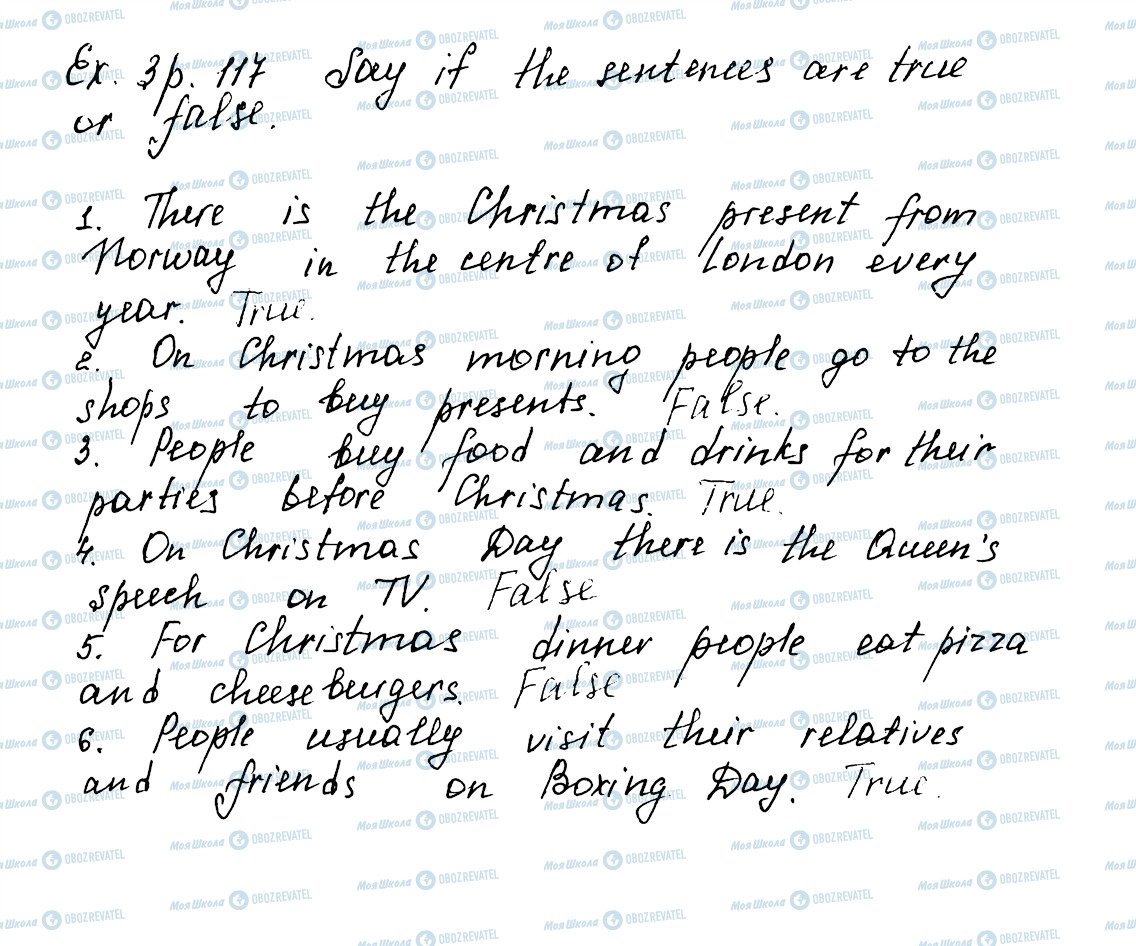 Ex. 3 p. 117 Say if the sentences are true
or false.
1. There is the Christmas present from
Norway in the centre of London every
year. True.
2. On Christmas morning people go to the
shops to buy presents. False.
3. People buy food and drinks for their
parties before Christmas. True.
4. On Christmas Day there is the Queen's
speech on TV. False
5. For Christmas dinner people eat pizza
and cheeseburgers. False
6. People usually visit their relatives
and friends on Boxing Day. True.
Моя Школа OBOZREVATEL